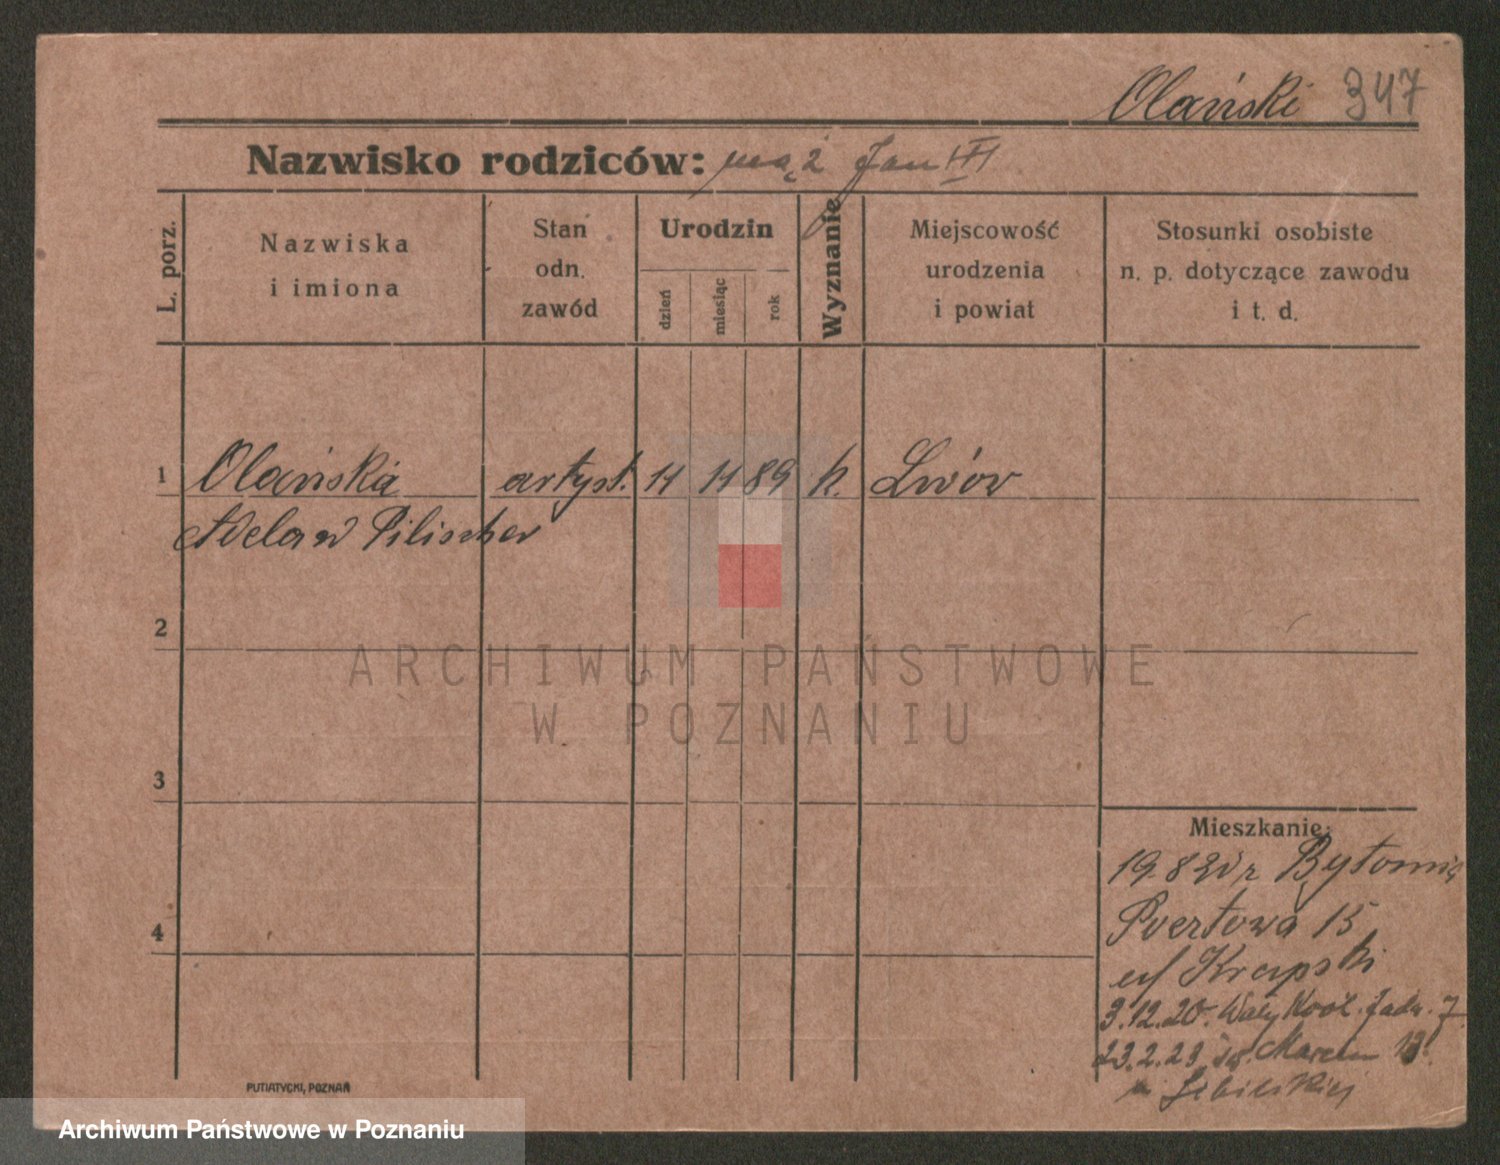 Olański 347
Nazwisko rodziców: mąż Jan III
L. porz.
Nazwiska
i imiona
Stan
odn.
zawód
Urodzin
dzień
miesiąc
rok
Wyznanie
Miejscowość
urodzenia
i powiat
Stosunki osobiste
n. p. dotyczące zawodu
i t. d.
1 Olańska artyst. 11 11 89 k. Lwów
Adela Pilischer
2
3
4
ARCHIWUM PAŃSTWOWE
W POZNANIU
Mieszkanie:
Bytomia
15
Krapski
3.12.20. Wały Jadw. 7
23.2.23 św. Marcin
PUTIATYCKI, POZNAŃ
Archiwum Państwowe w Poznaniu